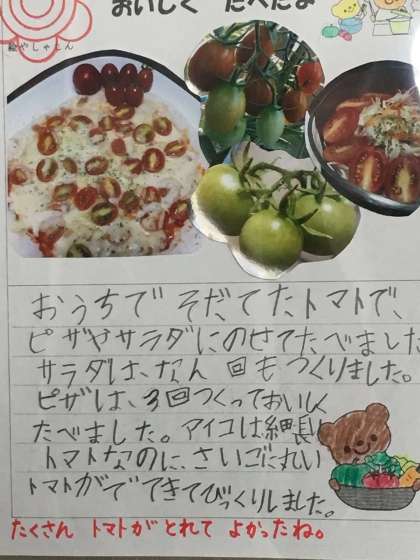 おいしく たべたよ
絵やしゃしん
おうちで そだてたトマトで、
ピザやサラダにのせてたべました
サラダは、なん回もつくりました。
ピザは、3回つくっておいしく
たべました。アイコは細長い
トマトなのに、さいごに丸い
トマトがでてきてびっくりしました。
たくさん トマトが とれて よかったね。